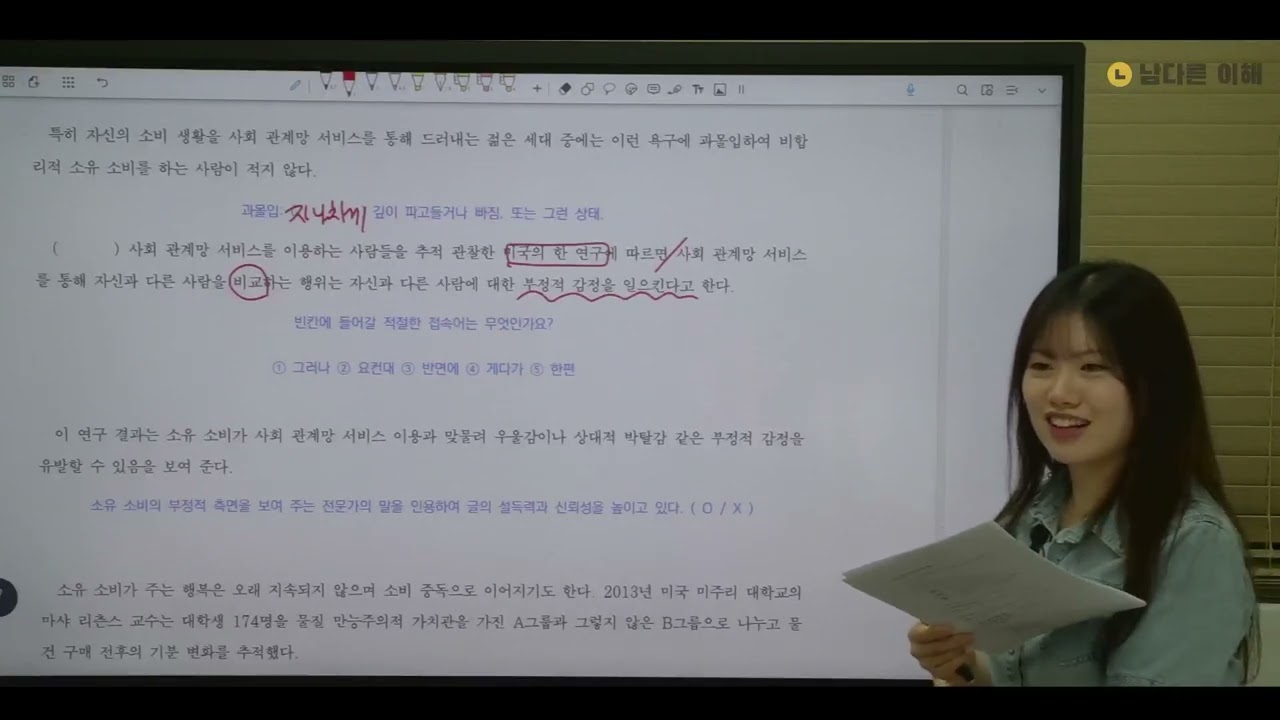 남다른 이해
특히 자신의 소비 생활을 사회 관계망 서비스를 통해 드러내는 젊은 세대 중에는 이런 욕구에 과몰입하여 비합
리적 소유 소비를 하는 사람이 적지 않다.
과몰입: 지나치게 깊이 파고들거나 빠짐. 또는 그런 상태.
( ) 사회 관계망 서비스를 이용하는 사람들을 추적 관찰한 미국의 한 연구에 따르면 사회 관계망 서비스
를 통해 자신과 다른 사람을 비교하는 행위는 자신과 다른 사람에 대한 부정적 감정을 일으킨다고 한다.
빈칸에 들어갈 적절한 접속어는 무엇인가요?
① 그러나 ② 요컨대 ③ 반면에 ④ 게다가 ⑤ 한편
이 연구 결과는 소유 소비가 사회 관계망 서비스 이용과 맞물려 우울감이나 상대적 박탈감 같은 부정적 감정을
유발할 수 있음을 보여 준다.
소유 소비의 부정적 측면을 보여 주는 전문가의 말을 인용하여 글의 설득력과 신뢰성을 높이고 있다. ( O / X )
소유 소비가 주는 행복은 오래 지속되지 않으며 소비 중독으로 이어지기도 한다. 2013년 미국 미주리 대학교의
마샤 리촌스 교수는 대학생 174명을 물질 만능주의적 가치관을 가진 A그룹과 그렇지 않은 B그룹으로 나누고 물
건 구매 전후의 기분 변화를 추적했다.